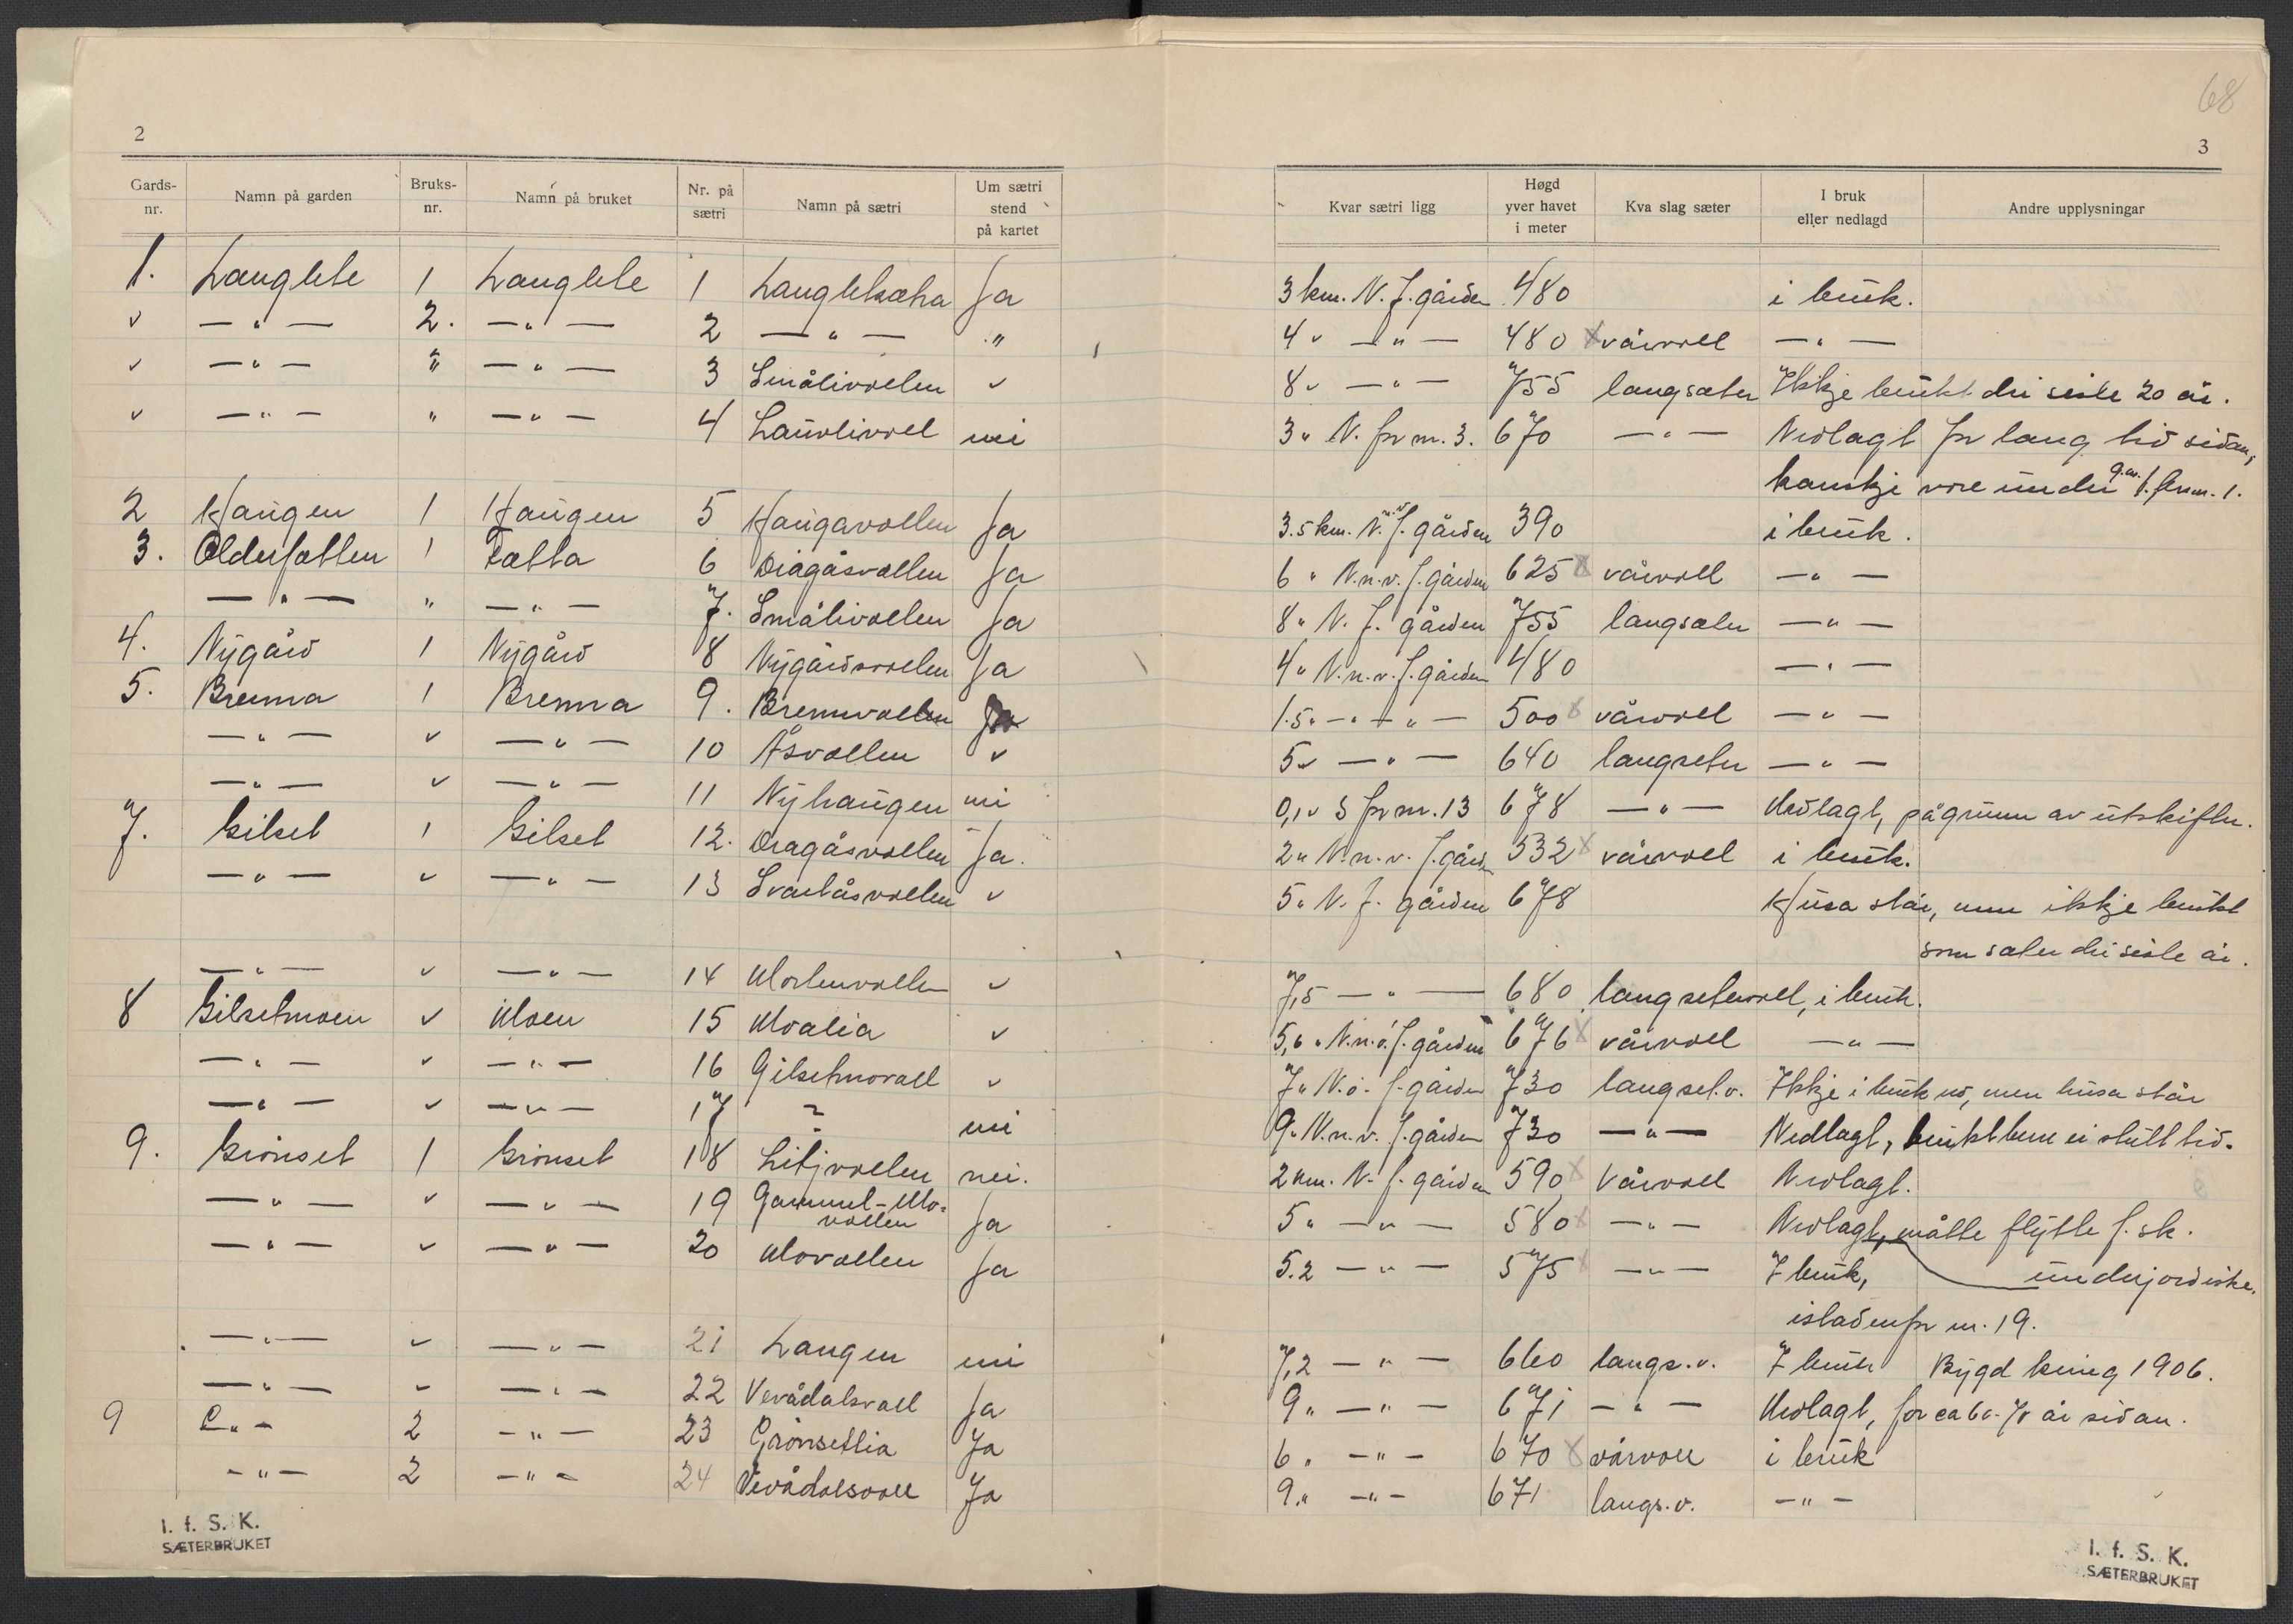 68
2
3
Gards-nr. Namn på garden Bruks-nr. Namn på bruket Nr. på sætri Namn på sætri Um sætri stend på kartet Kvar sætri ligg Høgd yver havet i meter Kva slag sæter I bruk eller nedlagd Andre upplysningar
1. Langlete 1 Langlete 1 Ja 3 km. N. f. gården 480 i bruk.
" — " — 2. — " — 2 — " — " 4 " — " — 480 x vårvoll — " —
" — " — " — " — 3 Smålivollen " 8 " — " — 755 langsæter Ikkje brukt dei siste 20 år.
" — " — " — " — 4 Laurlivoll nei 3 " N. for nr. 3. 670 — " — Nedlagt for lang tid sidan,
kanskje vore under g.nr. 1. br.nr. 1.
2 Haugen 1 Haugen 5 Haugavollen Ja 3.5 km. N.n.v. f. gården 390 i bruk.
3. Olderfatten 1 Fatta 6 Dragåsvollen Ja 6 " N.n.v. f. gården 625 x vårvoll — " —
— " — " — " — 7. Smålivollen Ja 8 " N. f. gården 755 langsæter — " —
4. Nygård 1 Nygård 8 Nygårdsvollen Ja 4 " N.n.v. f. gården 480 — " —
5. Brenna 1 Brenna 9. Brennvollen Ja 1.5 " — " — " — 500 x vårvoll — " —
— " — " — " — 10 Åsvollen " 5 " — " — 640 langseter — " —
— " — " — " — 11 Nyhaugen nei 0,1 " S for nr. 13 678 — " — Nedlagt, pågrunn av utskiften.
7. Gilset 1 Gilset 12. Dragåsvollen Ja. 2 " N.n.v. f. gården 532 x vårvoll i bruk.
— " — " — " — 13 Svartåsvollen " 5 " N. f. gården 678 Husa står, men ikkje brukt
som sæter dei siste år.
— " — " — " — 14 Mortenvollen " 7,5 — " — 680 langsetervoll, i bruk.
8 Gilsetmoen " Moen 15 Moalia " 5,6 " N.n.ö. f. gården 676 x vårvoll — " —
— " — " — " — 16 Gilsetmovoll " 7 " N.ö. f. gården 730 langset.v. Ikkje i bruk no, men husa står
— " — " — " — 17 ? nei 9 " N.n.v. f. gården 730 — " — Nedlagt, brukt bare ei stutt tid.
9. Grönset 1 Grönset 18 Litjvollen nei. 2 km. N. f. gården 590 x Vårvoll Nedlagt.
— " — " — " — 19 Gammel-Mo-vollen Ja 5 " — " — 580 x — " — Nedlagt, måtte flytte f. sk.
underjordiske.
— " — " — " — 20 Movollen Ja 5.2 — " — 575 x — " — I bruk,
istaden for nr. 19.
— " — " — " — 21 Langen nei 7,2 — " — 660 langs.v. I bruk Bygd kring 1906.
— " — " — " — 22 Vevådalsvoll Ja 9 " — " — 671 — " — Nedlagt, for ca 60-70 år sidan.
9 — " — 2 — " — 23 Grönsetlia Ja 6 " — " — 670 x vårvoll i bruk
— " — 2 — " — 24 Vevådalsvoll Ja 9 " — " — 671 langs.v. — " —
I. f. S. K.
SÆTERBRUKET
I. f. S. K.
SÆTERBRUKET